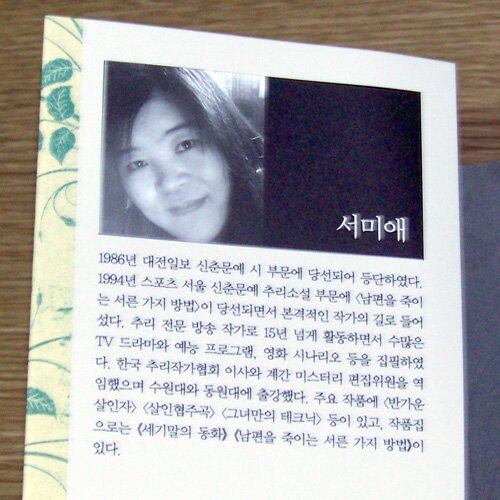 서미애
1986년 대전일보 신춘문예 시 부문에 당선되어 등단하였다.
1994년 스포츠 서울 신춘문예 추리소설 부문에 〈남편을 죽이
는 서른 가지 방법〉이 당선되면서 본격적인 작가의 길로 들어
섰다. 추리 전문 방송 작가로 15년 넘게 활동하면서 수많은
TV 드라마와 예능 프로그램, 영화 시나리오 등을 집필하였
다. 한국 추리작가협회 이사와 계간 미스터리 편집위원을 역
임했으며 수원대와 동원대에 출강했다. 주요 작품에 〈반가운
살인자〉 〈살인협주곡〉 〈그녀만의 테크닉〉 등이 있고, 작품집
으로는 《세기말의 동화》 《남편을 죽이는 서른 가지 방법》이
있다.